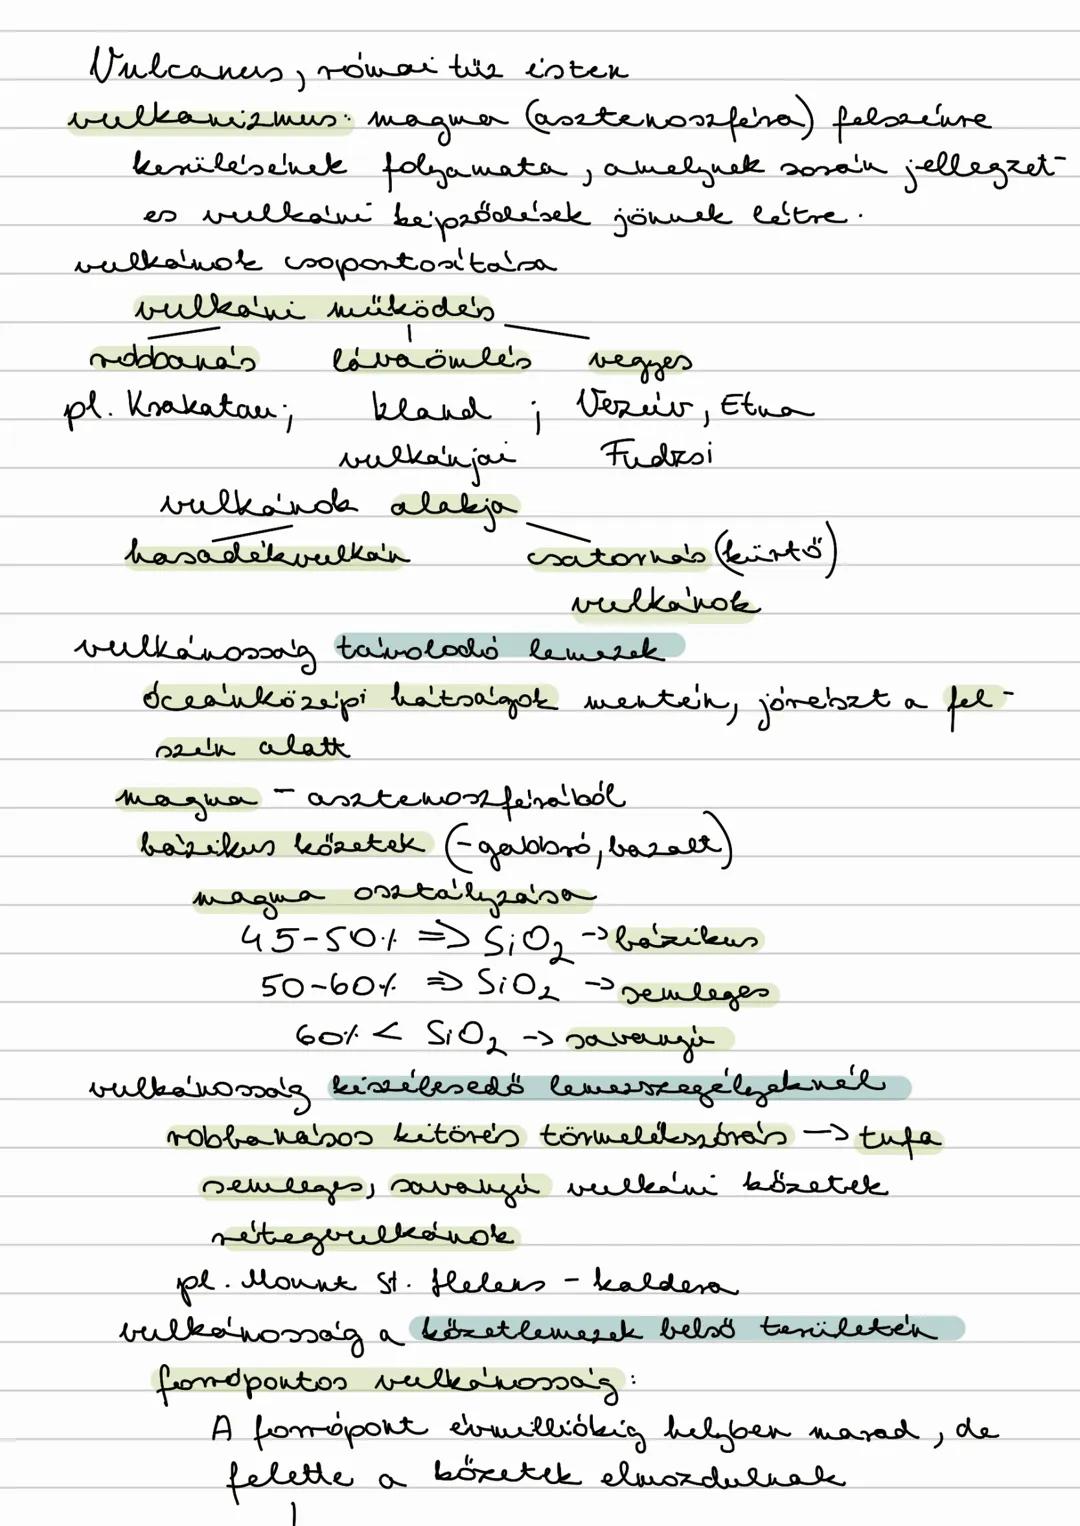 Vulcanus, római tűz isten
vulkanizmus: magma (asztenoszféra) felszínre
kerülésének folyamata, amelynek során jellegzet-
es vulkáni képződések jönnek létre.
vulkánok csoportosítása
vulkáni működés
robbanás lávaömlés vegyes
pl. Krakatau; Izland ; Vezúv, Etna
vulkánjai Fudzsi
vulkánok alakja
hasadékvulkán csatornás (kürtő)
vulkánok
vulkánosság távolodó lemezek
óceánközépi hátságok mentén, jórészt a fel-
szín alatt
magma - asztenoszférából
bázikus kőzetek (-gabbró, bazalt)
magma osztályzása
45-50% => SiO2 -> bázikus
50-60% => SiO2 -> semleges
60% < SiO2 -> savanyú
vulkánosság kiszélesedő lemezszegélyeknél
robbanásos kitörés törmelékszórás -> tufa
semleges, savanyú vulkáni kőzetek
rétegvulkánok
pl. Mount St. Helens - kaldera
vulkánosság a kőzetlemezek belső területén
forrópontos vulkánosság:
A forrópont évmilliókig helyben marad, de
felette a kőzetek elmozdulnak